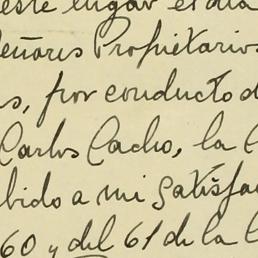 este lugar el día
Señores Propietarios
s, por conducto d
Carlos Cacho, la C
bido a mi satisfa
60 y del 61 de la C